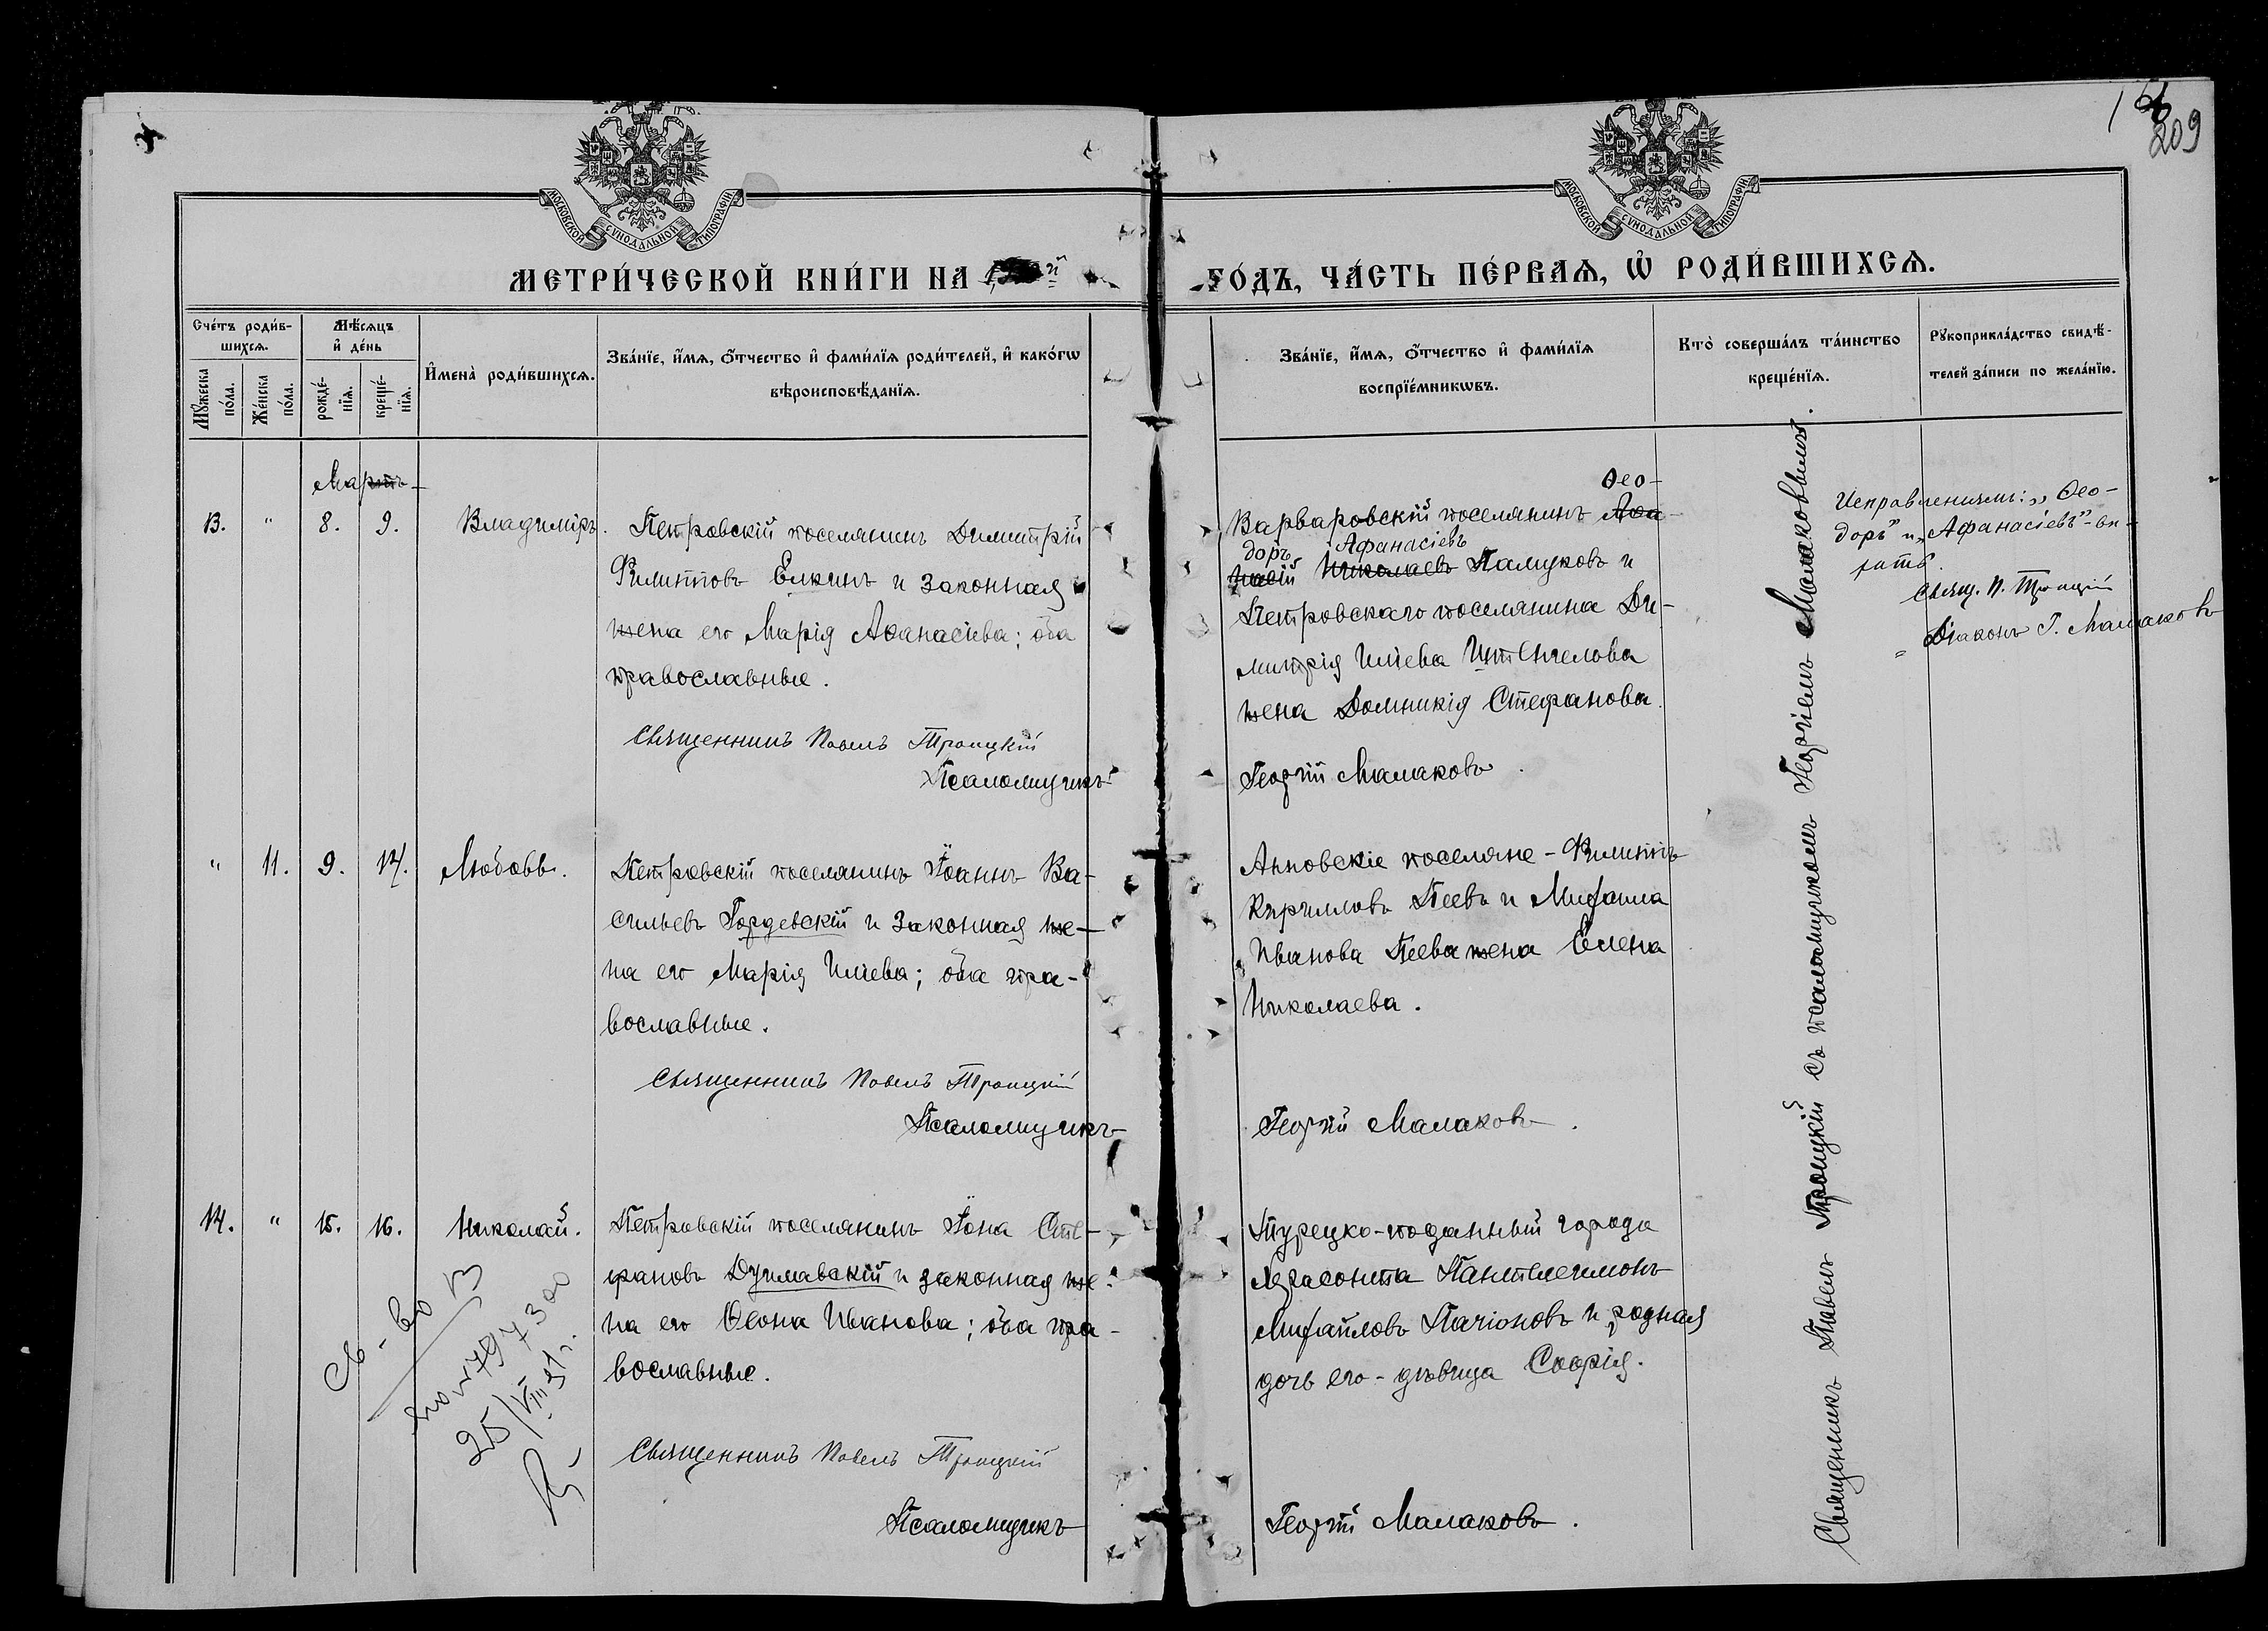 209
МОСКОВСКОЙ СѴНОДАЛЬНОЙ ТИПОГРАФІИ
МОСКОВСКОЙ СѴНОДАЛЬНОЙ ТИПОГРАФІИ
МЕТРИ́ЧЕСКОЙ КНИ́ГИ НА
ГО́ДЪ, ЧА́СТЬ ПЕ́РВАѦ, Ѡ҆ РОДИ́ВШИХСѦ.
Сче́тъ роди́в-
шихсѧ.
Мѣ́сѧцъ
и҆ де́нь
Мꙋ́жеска
по́ла.
Же́нска
по́ла.
рожде́-
нїѧ.
креще́-
нїѧ.
И҆мена̀ роди́вшихсѧ.
Зва́нїе, и҆́мѧ, ѻ҆́тчество и҆ фами́лїѧ роди́телей, и҆ како́гѡ
вѣроисповѣ́данїѧ.
Зва́нїе, и҆́мѧ, ѻ҆́тчество и҆ фами́лїѧ
воспрїе́мникѡвъ.
Кто̀ соверша́лъ та́инство
креще́нїѧ.
Рꙋкоприкла́дство свидѣ́-
телей за́писи по жела́нїю.
Мартъ
13. " 8. 9. Владиміръ.
Петровскій поселянинъ Димитрій
Филипповъ Елкинъ и законная
жена его Марія Аѳанасіева; оба
православные.
Священникъ Павелъ Троицкій
Псаломщикъ
Ѳео-
Варваровскій поселянинъ Аѳа-
доръ Афанасіевъ
насій Николаевъ Палуковъ и
Петровскаго поселянина Ди-
митрія Иліева
жена Домникія Стефанова.
Георгій Малаковъ.
Исправленнымъ: „Ѳео-
доръ" и „Афанасіевъ"-вѣ-
рить.
Свящ. П. Троицкій
Діаконъ Г. Малаковъ
" 11. 9. 14. Любовь.
Петровскій поселянинъ Іоаннъ Ва-
сильевъ Гордевскій и законная же-
на его Марія Иліева; оба пра-
вославные.
Священникъ Павелъ Троицкій
Псаломщикъ
Анновскіе поселяне - Филиппъ
Кирилловъ Пеевъ и Михаила
Иванова Пеева жена Елена
Николаева.
Георгій Малаковъ.
14. " 15. 16. Николай.
Петровскій поселянинъ Іона Сте-
фановъ Дулмавскій и законная же-
на его Ѳеона Иванова; оба пра-
вославные.
Священникъ Павелъ Троицкій
Псаломщикъ
Турецко-поданный города
Пантелеимонъ
Михайловъ Пачіоновъ и родная
дочь его - дѣвица Софія.
Георгій Малаковъ.
Священникъ Павелъ Троицкій съ псаломщикомъ Георгіемъ Малаковымъ.
Св-во
25/VIII 51 г.